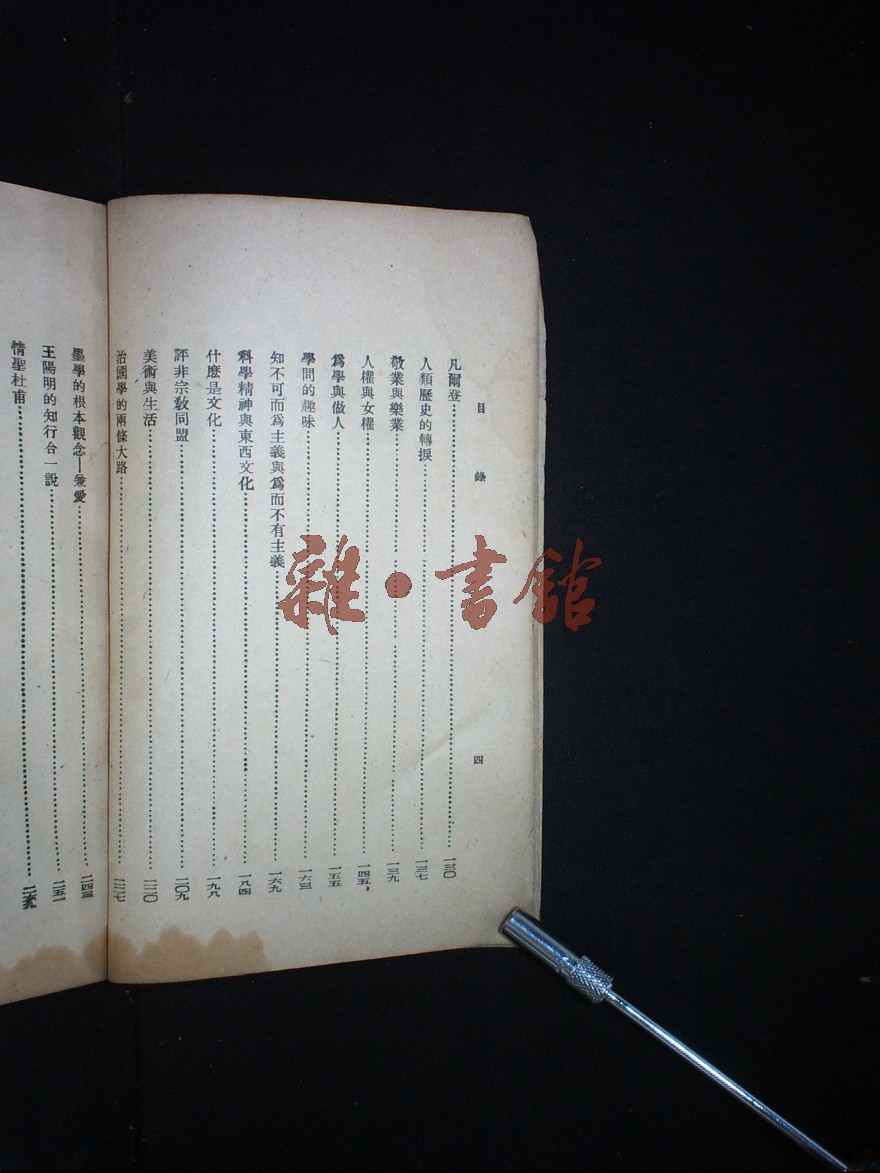 目錄
四
凡爾登……一三〇
人類歷史的轉捩……一三七
敬業與樂業……一三九
人權與女權……一四五
爲學與做人……一五五
學問的趣味……一六三
知不可而爲主義與爲而不有主義……一六九
科學精神與東西文化……一八四
什麽是文化……一九八
評非宗敎同盟……二〇九
美術與生活……二二〇
治國學的兩條大路……二二七
墨學的根本觀念—兼愛……二四三
王陽明的知行合一說……二五一
情聖杜甫……
雜·書館